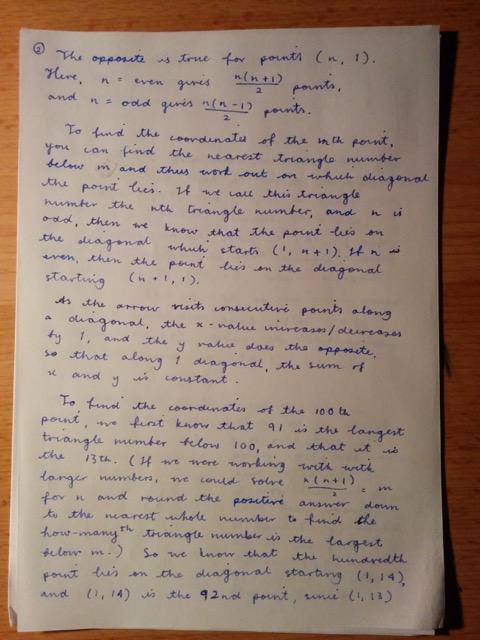 ②
The opposite is true for points (n, 1).
Here, n = even gives n(n+1)/2 points,
and n = odd gives n(n-1)/2 points.
To find the coordinates of the mth point,
you can find the nearest triangle number
below m and thus work out on which diagonal
the point lies. If we call this triangle
number the nth triangle number, and n is
odd, then we know that the point lies on
the diagonal which starts (1, n+1). If n is
even, then the point lies on the diagonal
starting (n+1, 1).
As the arrow visits consecutive points along
a diagonal, the x-value increases/decreases
by 1, and the y value does the opposite,
so that along 1 diagonal, the sum of
x and y is constant.
To find the coordinates of the 100th
point, we first know that 91 is the largest
triangle number below 100, and that it is
the 13th. (If we were working with with
larger numbers, we could solve n(n+1)/2 = m
for n and round the positive answer down
to the nearest whole number to find the
how-many th triangle number is the largest
below m.) So we know that the hundredth
point lies on the diagonal starting (1, 14),
and (1, 14) is the 92nd point, since (1, 13)